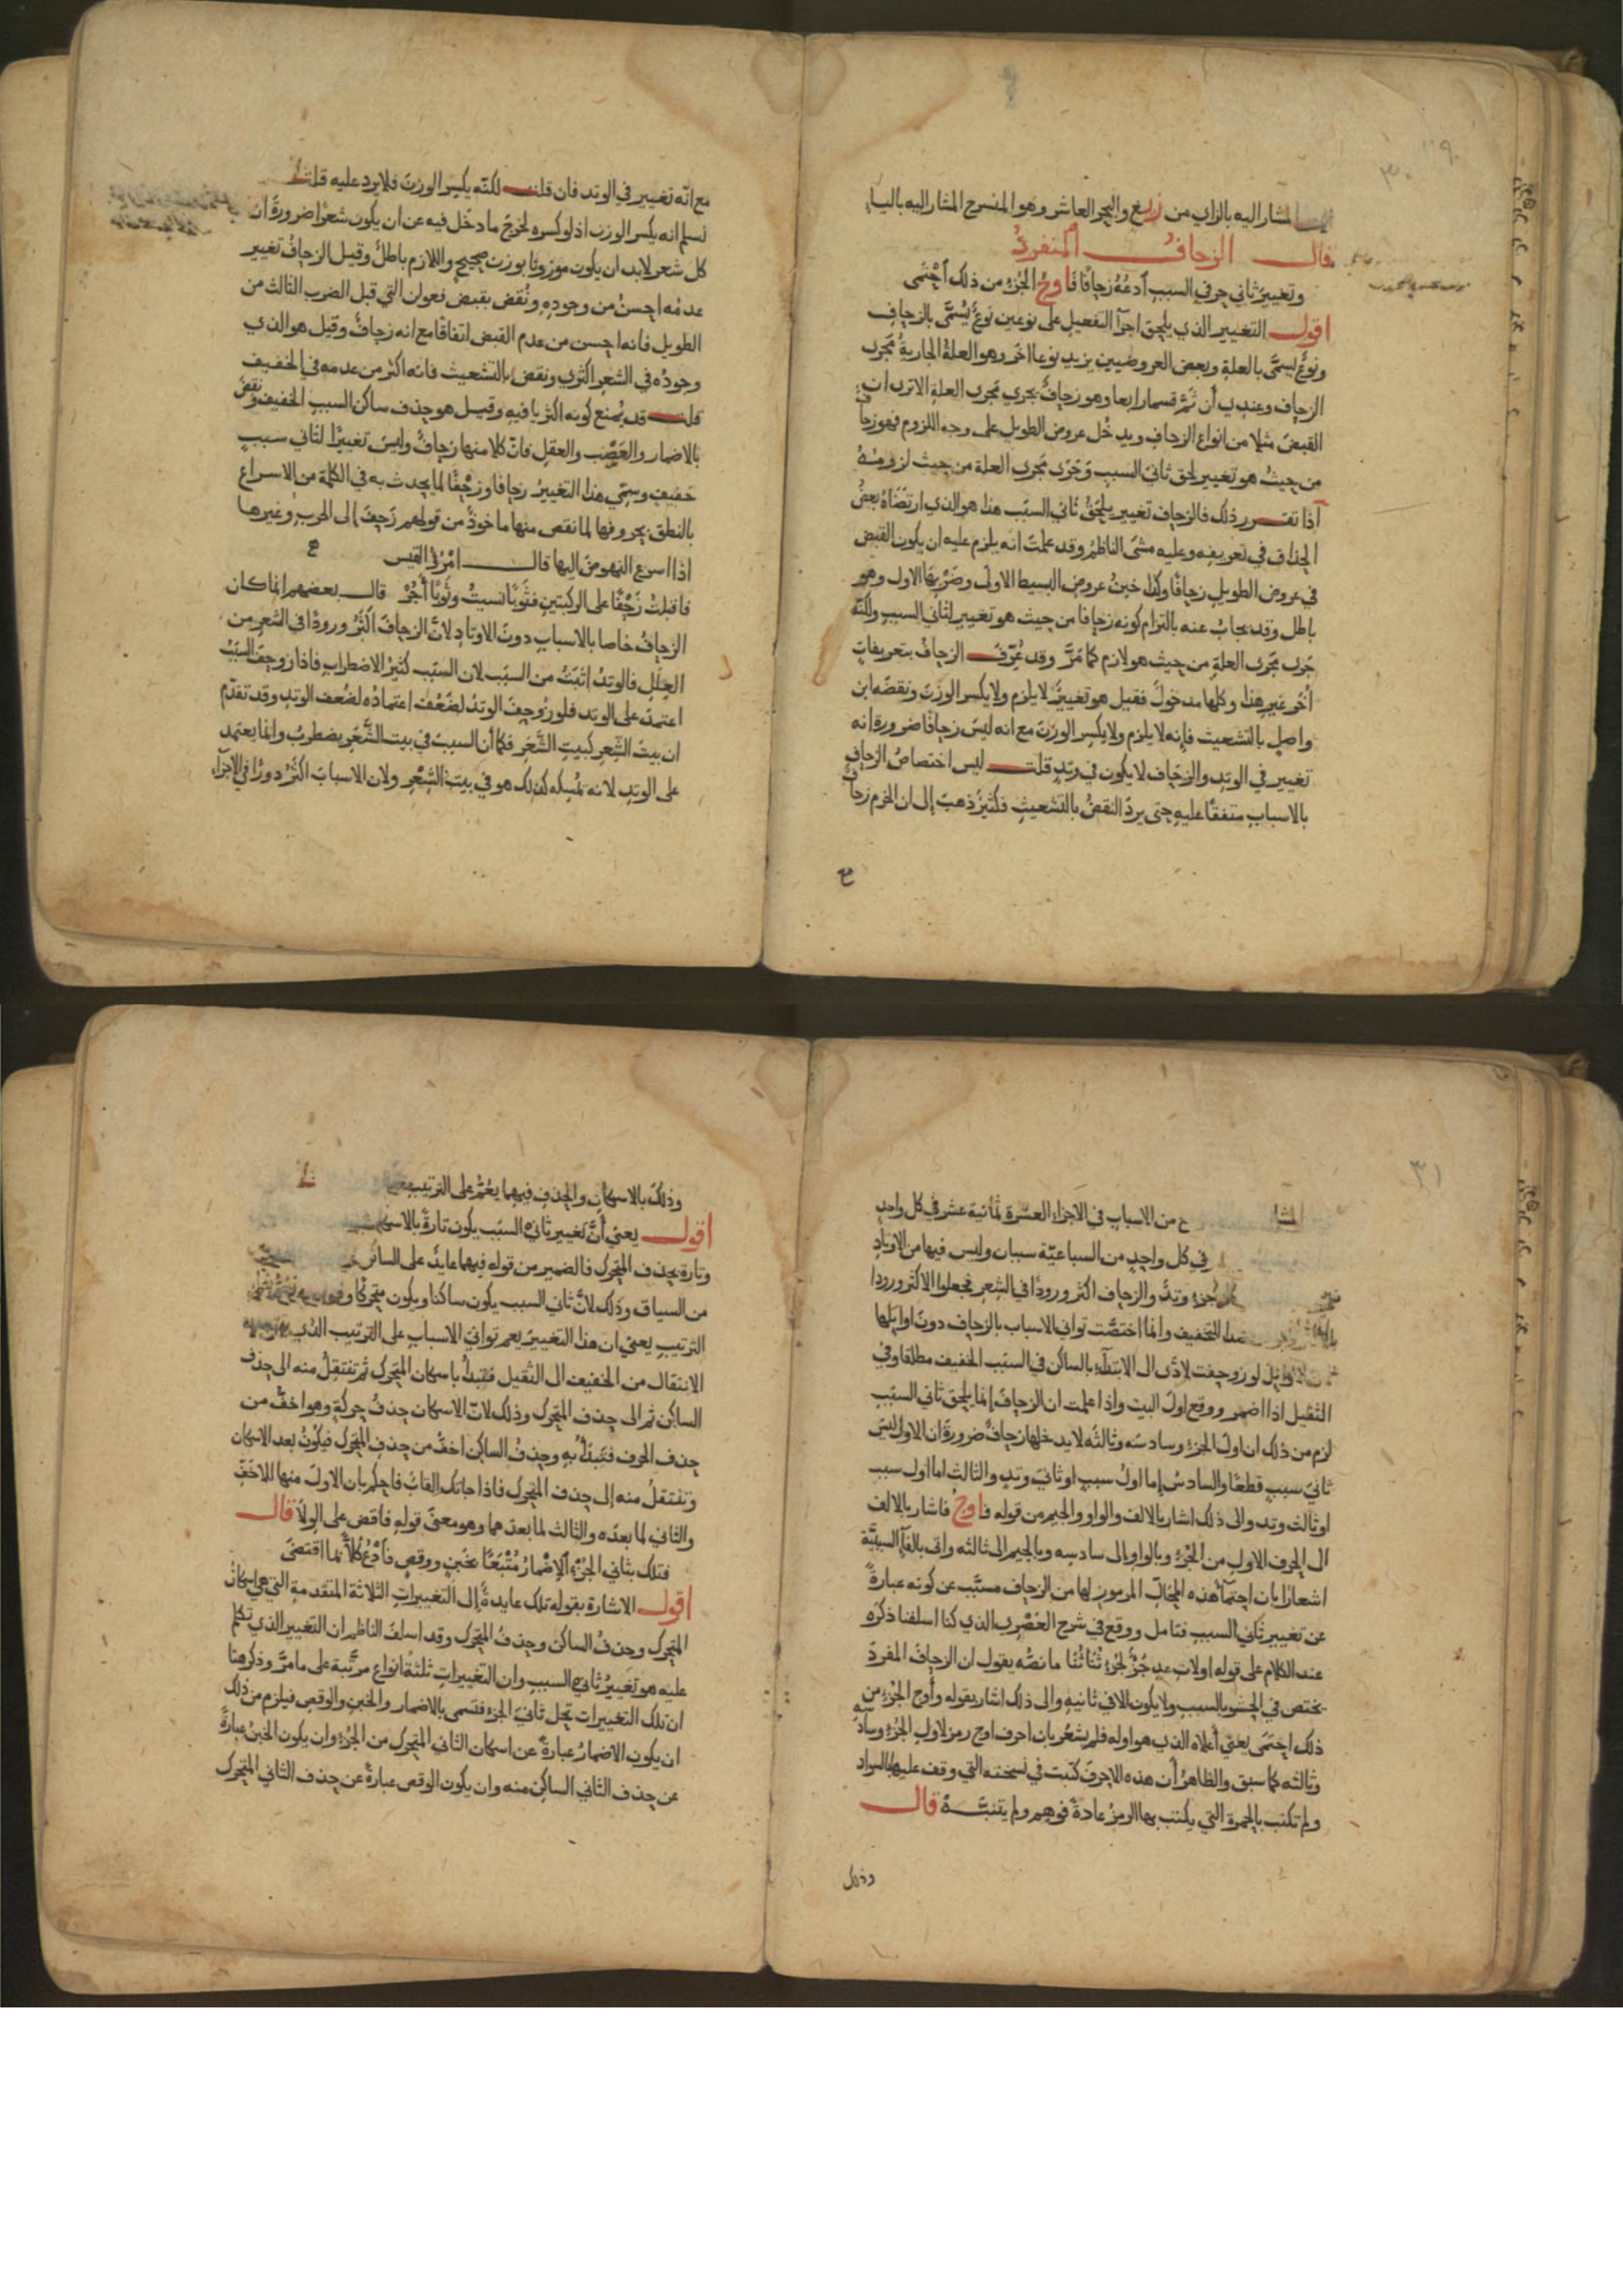 المشار اليه بالزاي من زرغ والبحر العاشر وهو المنسرح المشار اليه بالياء
قال الزحاف المنفرد
وتغيير ثاني حرفي السبب أدعه زحافا فاوج الجزء من ذلك احتمى
اقول التغيير الذي يلحق اجزآ التفعيل على نوعين نوع يسمى بالزحاف
ونوع يسمى بالعلة وبعض العروضيين يزيد نوعا اخر وهو العلة الجارية مجرى
الزحاف وعندي أن ثم قسما رابعا وهو زحاف يجري مجرى العلة الا ترى ان
القبض مثلا من انواع الزحاف ويدخل عروض الطويل على وجه اللزوم فهو زحاف
من حيث هو تغيير لحق ثاني السبب وجرى مجرى العلة من حيث لزومه
اذا تقرر ذلك فالزحاف تغيير يلحق ثاني السبب هذا هو الذي ارتضاه بعض
الحذاق في تعريفه وعليه مشى الناظم وقد علمت انه يلزم عليه ان يكون القبض
في عروض الطويل زحافا وكذا خبن عروض البسيط الاولى وضربها الاول وهو
باطل وقد يجاب عنه بالتزام كونه زحافا من حيث هو تغيير لثاني السبب ولكنه
جرى مجرى العلة من حيث هو لازم كما مر وقد عرف الزحاف بتعريفات
أخر غير هذا وكلها مدخول فقيل هو تغيير لا يلزم ولا يكسر الوزن ونقضه ابن
واصل بالتشعيث فإنه لا يلزم ولا يكسر الوزن مع انه ليس زحافا ضرورة انه
تغيير في الوتد والزحاف لا يكون في وتد قلت ليس اختصاص الزحاف
بالاسباب متفقا عليه حتى يرد النقض بالتشعيث فكثير ذهب إلى ان الخرم زحاف
مع
مع انه تغيير في الوتد فان قلت لكنه يكسر الوزن فلا يرد عليه قلت لا
نسلم انه يكسر الوزن اذ لو كسره لخرج ما دخل فيه عن ان يكون شعرا ضرورة ان
كل شعر لا بد ان يكون موزونا بوزن صحيح واللازم باطل وقيل الزحاف تغيير
عدمه احسن من وجوده ونقض بقبض فعولن التي قبل الضرب الثالث من
الطويل فانه احسن من عدم القبض اتفاقا مع انه زحاف وقيل هو الذي
وجوده في الشعر اكثري ونقض بالتشعيث فانه اكثر من عدمه في الخفيف
قلت قد يمنع كونه اكثريا فيه وقيل هو حذف ساكن السبب الخفيف ونقض
بالاضمار والعصب والعقل فان كلا منها زحاف وليس تغييرا لثاني سبب
خفيف وسمي هذا التغيير زحافا وزحفا لما يحدث به في الكلمة من الاسراع
بالنطق بحروفها لما نقص منها ماخوذ من قولهم زحف إلى الحرب وغيرها
اذا اسرع النهوض اليها قال امرؤ القيس
فاقبلت زحفا على الركبتين فثوبا نسيت وثوبا أجر قال بعضهم انما كان
الزحاف خاصا بالاسباب دون الاوتاد لان الزحاف اكثر ورودا في الشعر من
العلل فالوتد اثبت من السبب لان السبب كثير الاضطراب فاذا زوحف السبب
اعتمد على الوتد فلو زوحف الوتد لضعف اعتماده لضعف الوتد وقد تقدم
ان بيت الشعر كبيت الشعر فكما أن السبب في بيت الشعر يضطرب وانما يعتمد
على الوتد لانه يمسكه كذلك هو في بيت الشعر ولان الاسباب اكثر دورا في الاجزاء
من الاسباب في الاجزاء العشرة ثمانية عشر في كل واحد
في كل واحد من السباعية سببان وليس فيها من الاوتاد
جزء وتد والزحاف اكثر ورودا في الشعر فجعلوا الاكثر ورودا
التخفيف وانما اختصت ثواني الاسباب بالزحاف دون اوايلها
الاوايل لو زوحفت لادى الى الابتداء بالساكن في السبب الخفيف مطلقا وفي
الثقيل اذا اضمر ووقع اول البيت واذا علمت ان الزحاف إنما يلحق ثاني السبب
لزم من ذلك ان اول الجزء وسادسه وثالثه لا يدخلها زحاف ضرورة ان الاول ليس
ثاني سبب قطعا والسادس إما اول سبب او ثاني وتد والثالث اما اول سبب
او ثالث وتد والى ذلك اشار بالالف والواو والجيم من قوله فاوج فاشار بالالف
الى الحرف الاول من الجزء وبالواو إلى سادسه وبالجيم الى ثالثه واتى بالفآ السببية
اشعارا بان احتمآ هذه المحال المرموز لها من الزحاف مسبب عن كونه عبارة
عن تغيير ثاني السبب فتامل ووقع في شرح العصري الذي كنا اسلفنا ذكره
عند الكلام على قوله اولات عد جزء لجزء ثنا ثنا ما نصه يقول ان الزحاف المفرد
يختص في الحشو بالسبب ولا يكون الا في ثانيه والى ذلك اشار بقوله وأوج الجزء من
ذلك احتمى يعني أعلاه الذي هو اوله فلم يشعر بان احرف اوج رمز لاول الجزء وسادسه
وثالثه كما سبق والظاهر أن هذه الاحرف كتبت في نسخته التي وقف عليها بالسواد
ولم تكتب بالحمرة التي يكتب بها الرمز عادة فوهم ولم يتنبه قال
وذلك
وذلك بالاسكان والحذف فيهما يعم على الترتيب
اقول يعني أن تغيير ثاني السبب يكون تارة بالاسكان
وتارة بحذف المتحرك فالضمير من قوله فيهما عايد على الساكن
من السياق وذلك لان ثاني السبب يكون ساكنا ويكون متحركا
الترتيب يعني ان هذا التغيير يعم ثواني الاسباب على الترتيب الذي
الانتقال من الخفيف الى الثقيل فتبدأ باسكان المتحرك ثم تنتقل منه الى حذف
الساكن ثم الى حذف المتحرك وذلك لان الاسكان حذف حركة وهو اخف من
حذف الحرف فتبدأ به وحذف الساكن اخف من حذف المتحرك فيكون بعد الاسكان
وتنتقل منه إلى حذف المتحرك فاذا جاتك القاب فاحكم بان الاول منها للاخف
والثاني لما بعده والثالث لما بعدهما وهو معنى قوله فاقض على الولا قال
فتلك بثاني الجزء الإضمار متبعا بخبن ووقص فادع كلا بما اقتضى
اقول الاشارة بقوله تلك عايدة إلى التغييرات الثلاثة المتقدمة التي هي اسكان
المتحرك وحذف الساكن وحذف المتحرك وقد اسلف الناظم ان التغيير الذي تكلم
عليه هو تغيير ثاني السبب وان التغييرات ثلثة انواع مرتبة على ما مر وذكر هنا
ان تلك التغييرات تحل ثاني الجزء فتسمى بالاضمار والخبن والوقص فيلزم من ذلك
ان يكون الاضمار عبارة عن اسكان الثاني المتحرك من الجزء وان يكون الخبن عبارة
عن حذف الثاني الساكن منه وان يكون الوقص عبارة عن حذف الثاني المتحرك